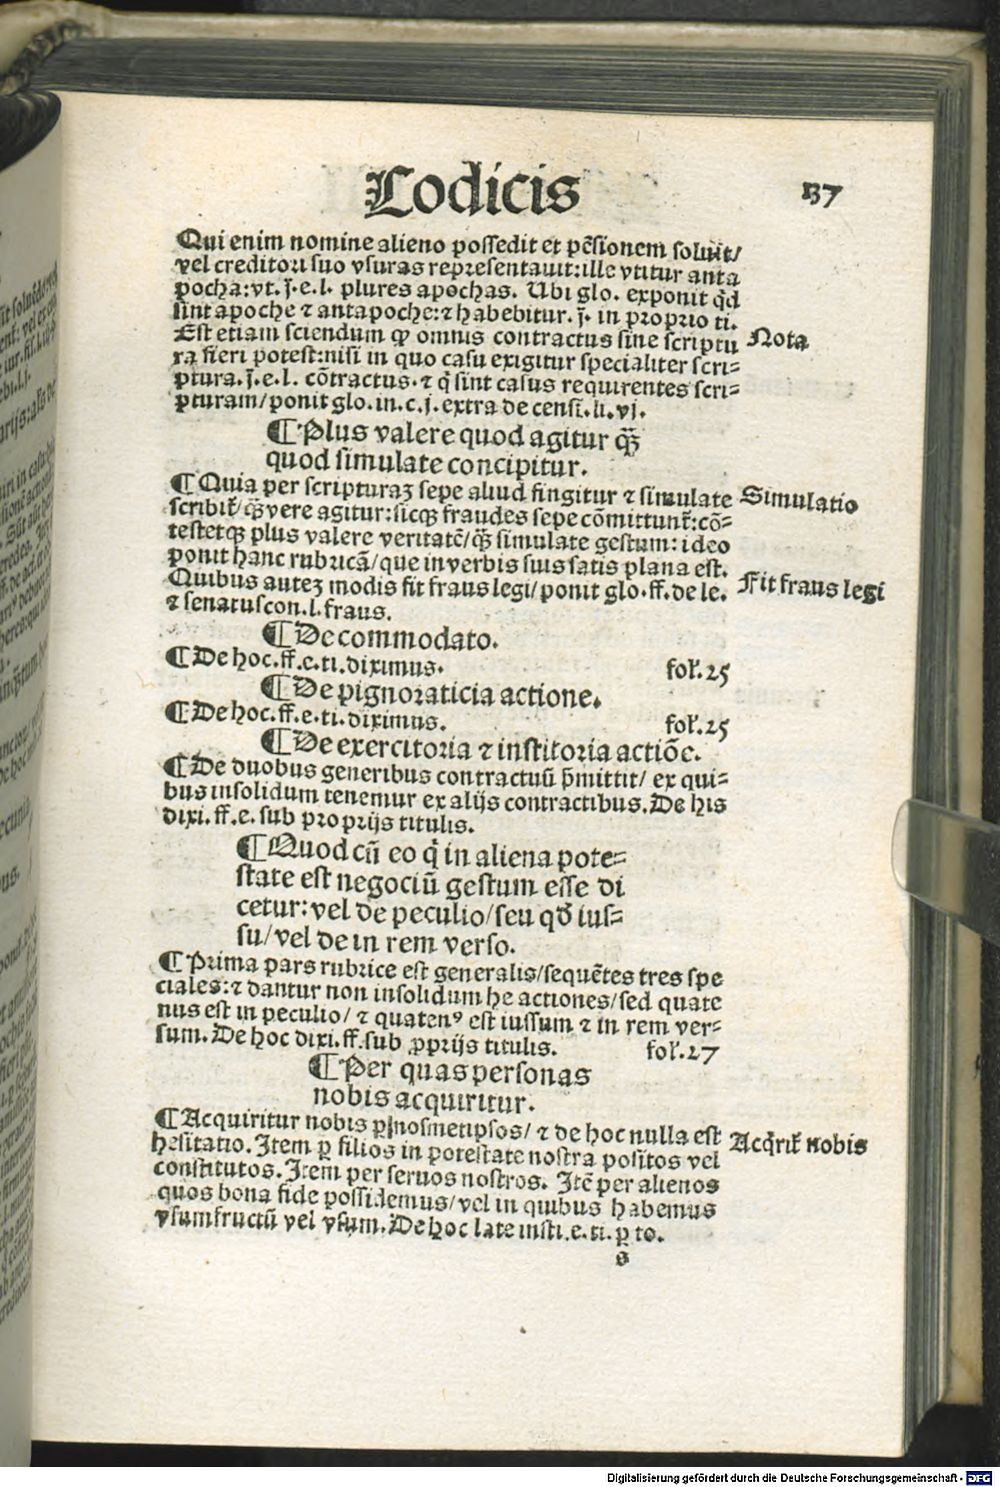 Codicis 137
Qui enim nomine alieno possedit et pēsionem soluit/
vel creditori suo vsuras representauit:ille vtitur anta
pocha:vt. j̄.e.l. plures apochas. Ubi glo. exponit qd̄
sint apoche ⁊ antapoche:⁊ habebitur. j̄. in proprio ti.
Est etiam sciendum ꝙ omnis contractus sine scriptu Nota
ra fieri potest:nisi in quo casu exigitur specialiter scri=
ptura. j̄.e.l. cōtractus.⁊ q̄ sint casus requirentes scri=
pturam/ponit glo.in.c.j.extra de censi.li.vj.
¶Plus valere quod agitur q̄ꝫ
quod simulate concipitur.
¶Quia per scripturaꝫ sepe aliud fingitur ⁊ simulate Simulatio
scribit᷑/q̄ꝫ vere agitur:sicqꝫ fraudes sepe cōmittunt᷑:cō=
testetqꝫ plus valere veritatē/q̄ꝫ simulate gestum:ideo
ponit hanc rubricā/que in verbis suis satis plana est.
Quibus auteꝫ modis fit fraus legi/ponit glo.ff.de le. Fit fraus legi
⁊ senatuscon.l.fraus.
¶De commodato.
¶De hoc.ff.e.ti.diximus. fol᷑.25
¶De pignoraticia actione.
¶De hoc.ff.e.ti.diximus. fol᷑.25
¶De exercitoria ⁊ institoria actiōe.
¶De duobus generibus contractuū p̄mittit/ ex qui=
bus insolidum tenemur ex alijs contractibus.De his
dixi.ff.e.sub proprijs titulis.
¶Quod cū eo q̇ in aliena pote=
state est negociū gestum esse di
cetur:vel de peculio/seu qd̄ ius=
su/vel de in rem verso.
¶Prima pars rubrice est generalis/sequētes tres spe
ciales:⁊ dantur non insolidum he actiones/sed quate
nus est in peculio/ ⁊ quatenꝰ est iussum ⁊ in rem ver=
sum.De hoc dixi.ff.sub ꝓprijs titulis. fol᷑.27
¶Per quas personas
nobis acquiritur.
¶Acquiritur nobis ꝑ nosmetipsos/ ⁊ de hoc nulla est Acq̇rit᷑ nobis
hesitatio. Item ꝑ filios in potestate nostra positos vel
constitutos. Item per seruos nostros. Itē per alienos
quos bona fide possidemus/vel in quibus habemus
vsumfructū vel vsum.De hoc late insti.e.ti.ꝑ to.
s
Digitalisierung gefördert durch die Deutsche Forschungsgemeinschaft - DFG